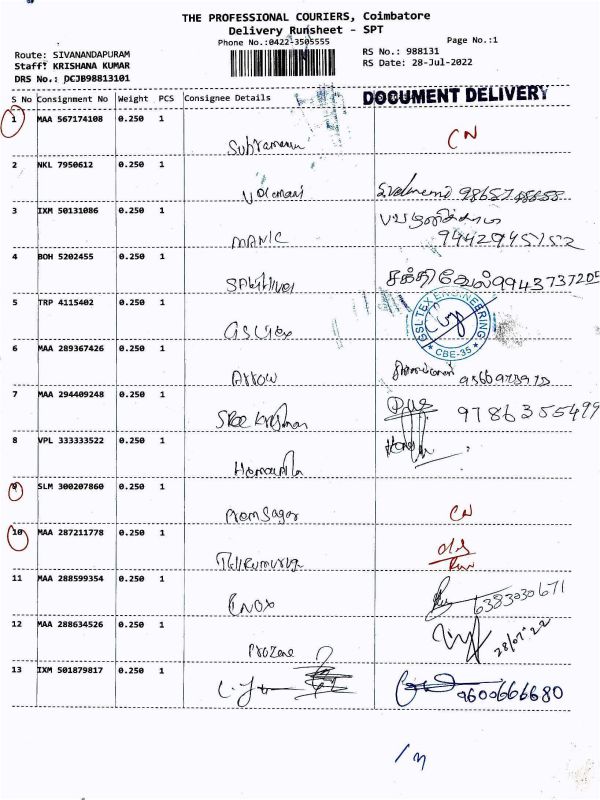 THE PROFESSIONAL COURIERS, Coimbatore
Delivery Runsheet - SPT
Phone No.:0422-3505555
Page No.:1
Route: SIVANANDAPURAM
Staff: KRISHANA KUMAR
DRS No.: DCJB98813101
RS No.: 988131
RS Date: 28-Jul-2022
S No Consignment No Weight PCS Consignee Details
DOCUMENT DELIVERY
1 MAA 567174108 0.250 1
CN
2 NKL 7950612 0.250 1
3 IXM 50131086 0.250 1
MANIC 9442945152
4 BOH 5202455 0.250 1
சக்திவேல் 9943737205
5 TRP 4115402 0.250 1
GSL Tex
GSL TEX ENGINEERING
* CBE-35 *
6 MAA 289367426 0.250 1
Arrow
7 MAA 294409248 0.250 1
Sree Krishnan 9786355499
8 VPL 333333522 0.250 1
9 SLM 300207860 0.250 1
Prem Sagar CN
10 MAA 287211778 0.250 1
11 MAA 288599354 0.250 1
Enox 6383030671
12 MAA 288634526 0.250 1
Prozone 28/07/22
13 IXM 501879817 0.250 1
9600666680